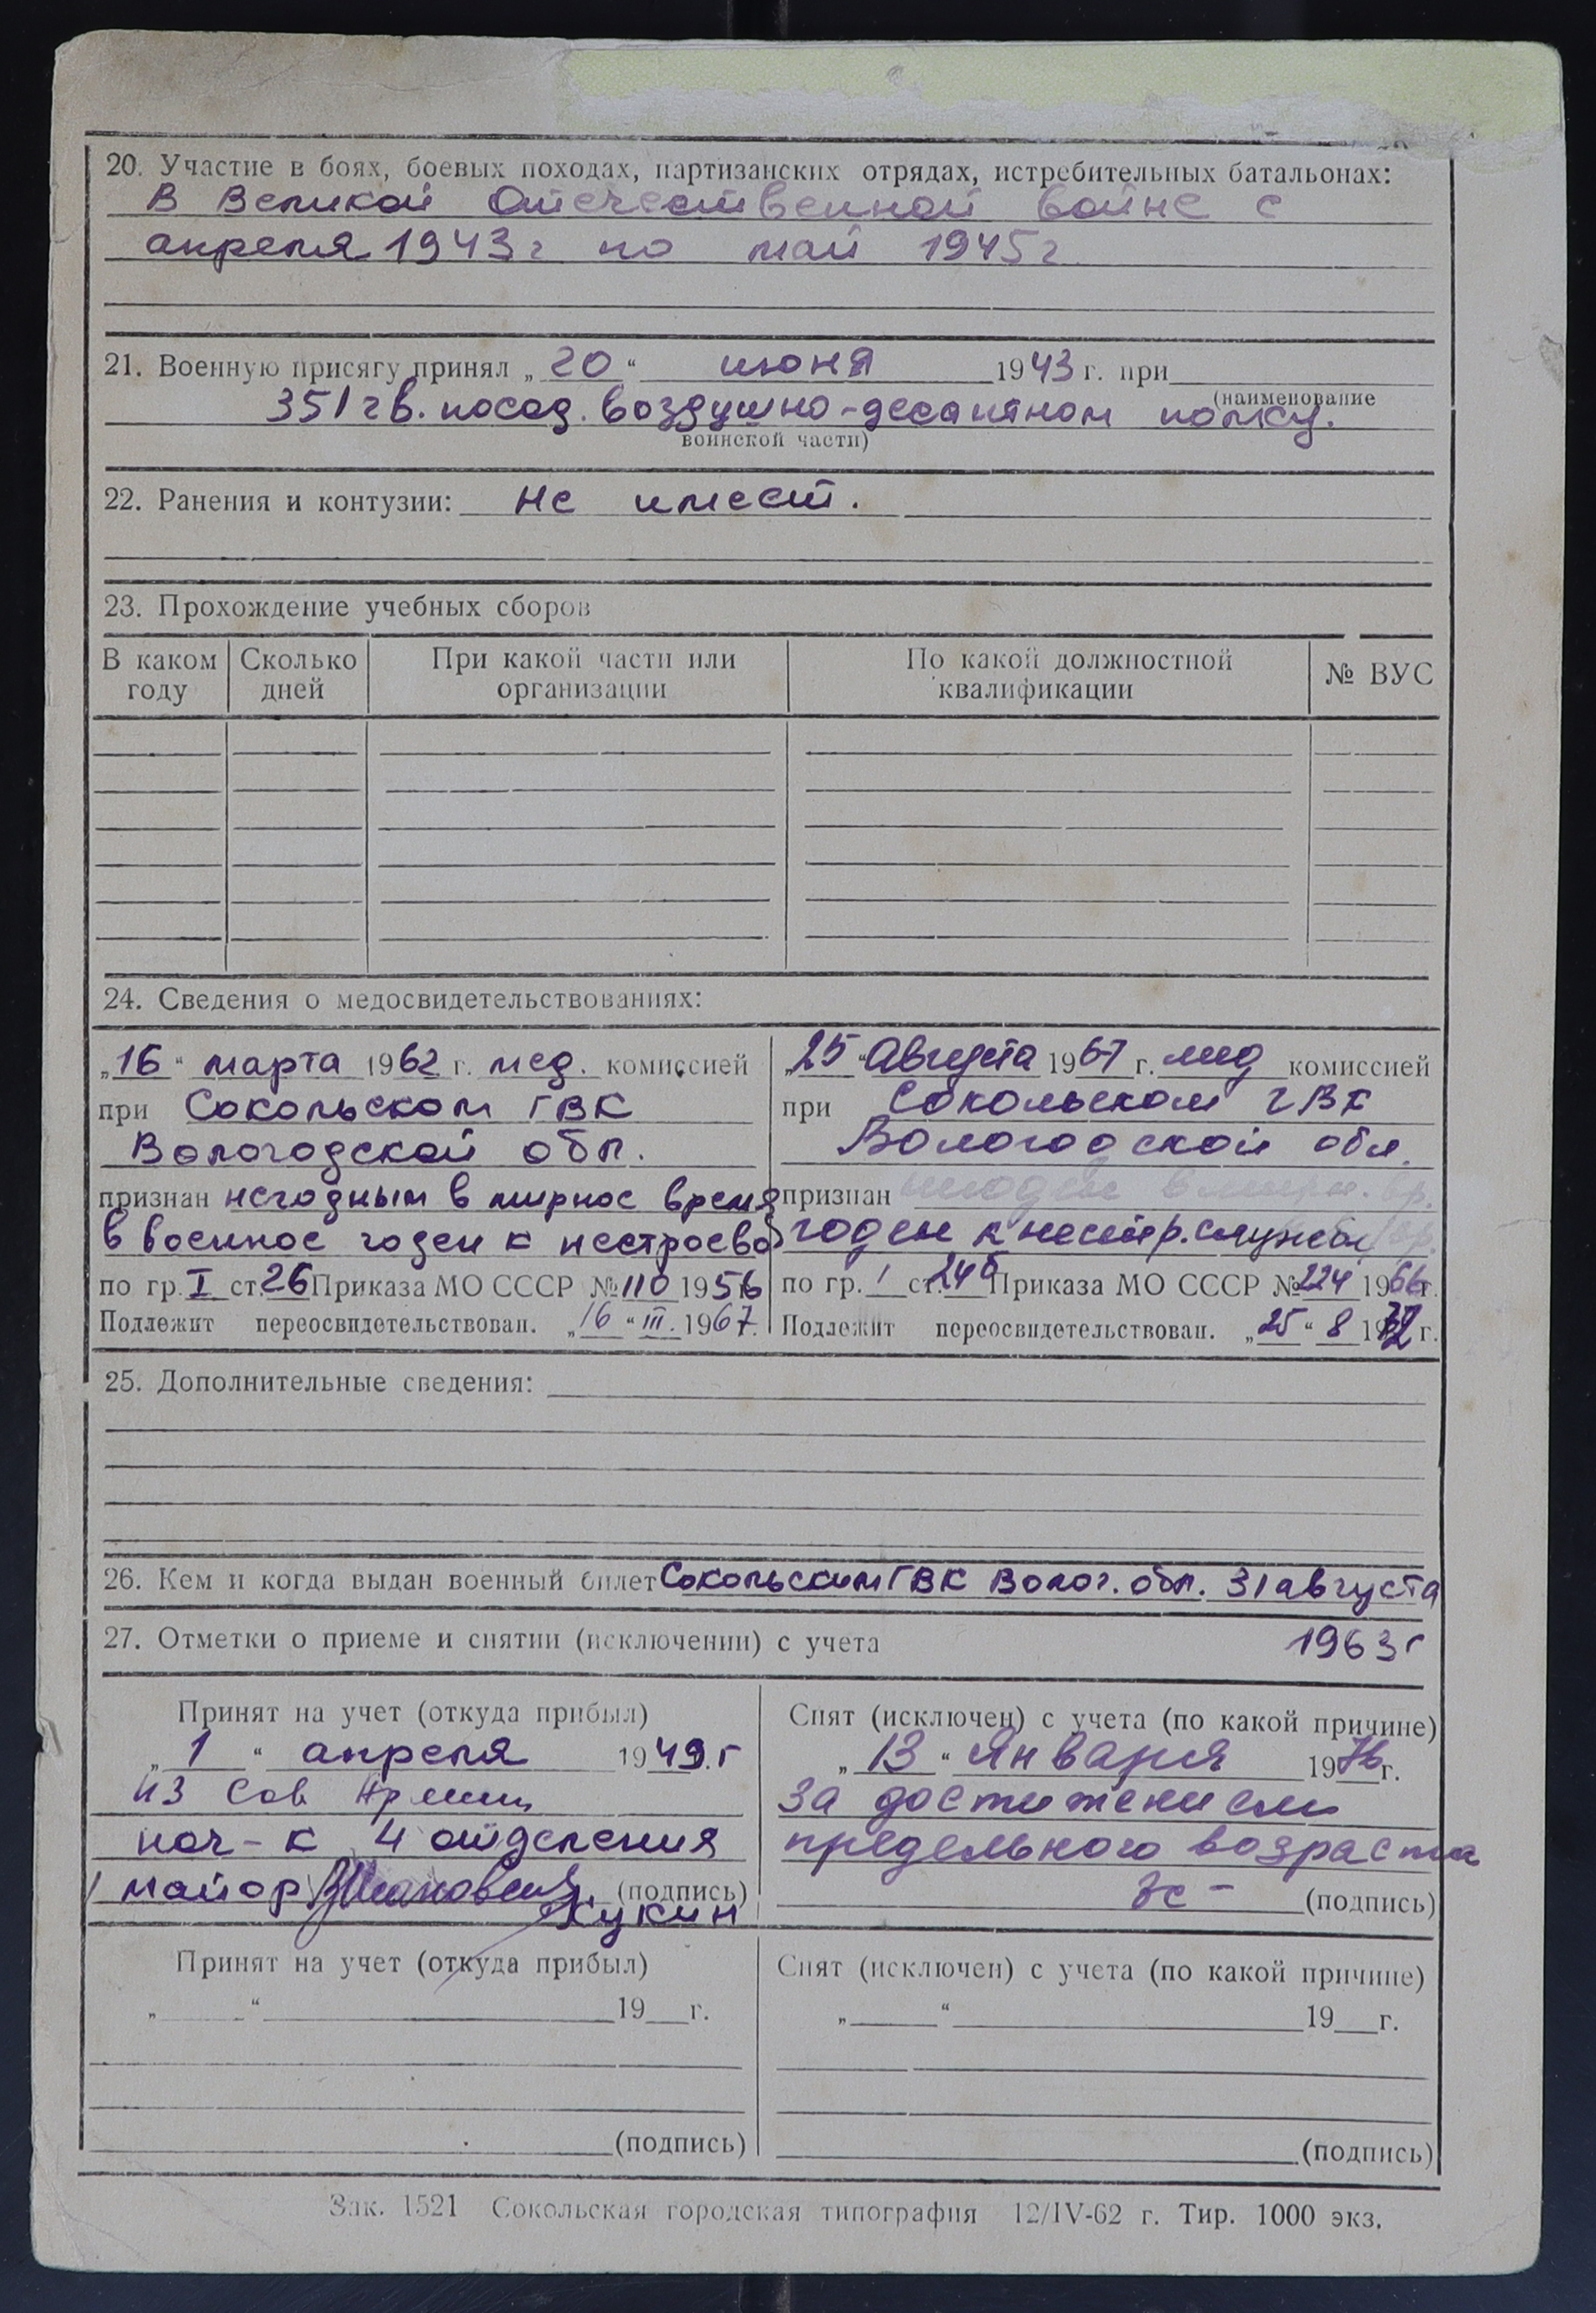 20. Участие в боях, боевых походах, партизанских отрядах, истребительных батальонах:
В Великой Отечественной войне с
апреля 1943г по май 1945г
21. Военную присягу принял „20“ июня 1943 г. при
(наименование
351 гв. посад. воздушно-десантном полку.
воинской части)
22. Ранения и контузии: Не имеет.
23. Прохождение учебных сборов
В каком году Сколько дней При какой части или организации По какой должностной квалификации № ВУС
24. Сведения о медосвидетельствованиях:
„16“ марта 1962 г. мед. комиссией
при Сокольском ГВК
Вологодской обл.
признан негодным в мирное время
в военное годен к нестроевой
по гр. I ст. 26 Приказа МО СССР № 110 1956
Подлежит переосвидетельствован. „16“ III. 1967.
„25“ Августа 1967 г. мед комиссией
при Сокольском ГВК
Вологодской обл.
признан
годен к нестр. службе
по гр. 1 ст. 24б Приказа МО СССР № 224 1966г.
Подлежит переосвидетельствован. „25“ 8 1972 г.
25. Дополнительные сведения:
26. Кем и когда выдан военный билет Сокольским ГВК Волог. обл. 31 августа
1963г
27. Отметки о приеме и снятии (исключении) с учета
Принят на учет (откуда прибыл)
„1“ апреля 1949.г
из Сов Армии
нач-к 4 отделения
майор (подпись)
Кукин
Снят (исключен) с учета (по какой причине)
„13“ Января 1976г.
За достижением
предельного возраста
(подпись)
Принят на учет (откуда прибыл)
„ “ 19 г.
(подпись)
Снят (исключен) с учета (по какой причине)
„ “ 19 г.
(подпись)
Зак. 1521 Сокольская городская типография 12/IV-62 г. Тир. 1000 экз.